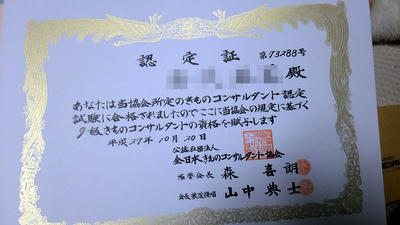 認定証
第73288号
殿
あなたは当協会所定のきものコンサルタント認定
試験に合格されましたのでここに当協会の規定に基づく
きものコンサルタントの資格を賦与します
平成27年10月20日
公益社団法人
全日本きものコンサルタント協会
名誉会長 森 喜朗
会長 山中典士